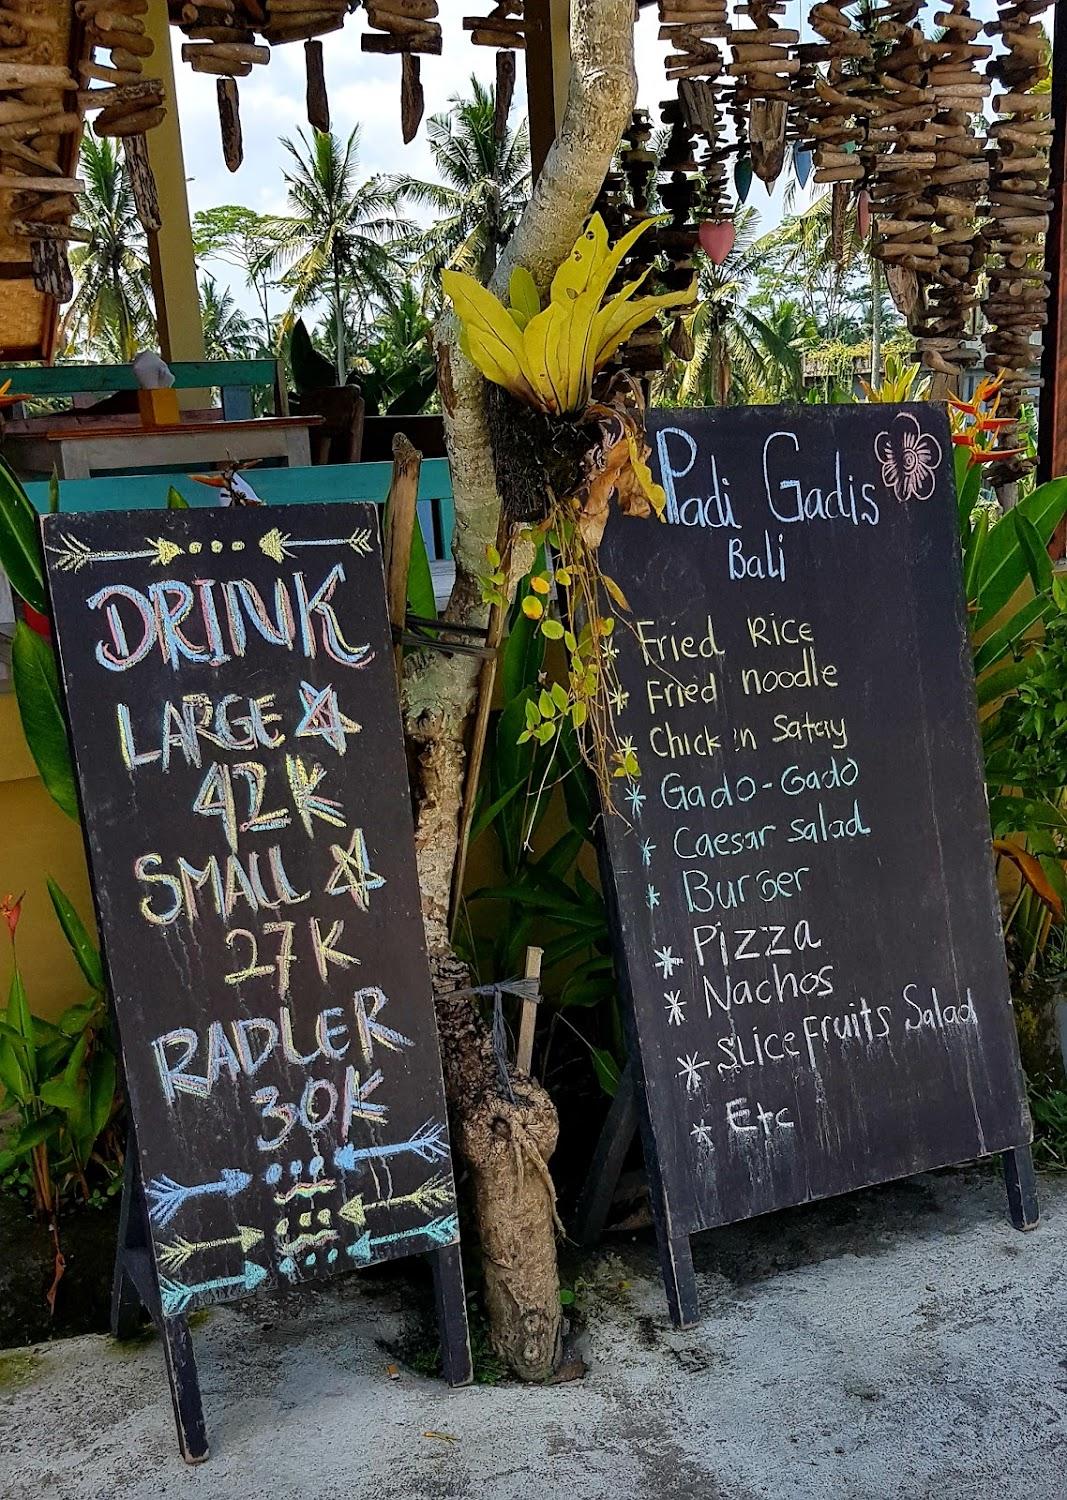 DRINK
LARGE
42K
SMALL
27K
RADLER
30K
Padi Gadis
Bali
* Fried Rice
* Fried noodle
* Chicken Satay
* Gado-Gado
* Caesar Salad
* Burger
* Pizza
* Nachos
* Slice Fruits Salad
* Etc